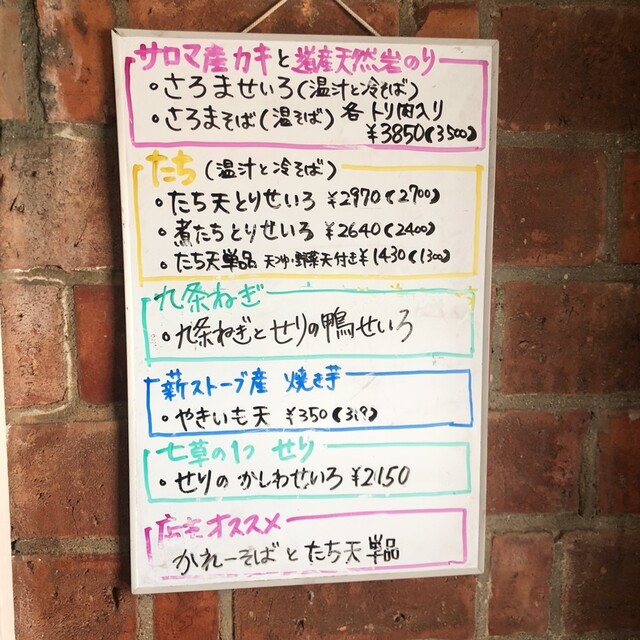 サロマ産カキと道産天然岩のり
・さろませいろ(温汁と冷そば)
・さろまそば(温そば) 各トリ肉入り
¥3850(3500)
たち(温汁と冷そば)
・たち天とりせいろ ¥2970(2700)
・煮たちとりせいろ ¥2640(2400)
・たち天単品 天つゆ・野菜天付き ¥1430(1300)
九条ねぎ
・九条ねぎとせりの鴨せいろ
薪ストーブ産 焼き芋
・やきいも天 ¥350(319)
七草の1つ せり
・せりの かしわせいろ ¥2150
店主オススメ
かれーそばとたち天単品